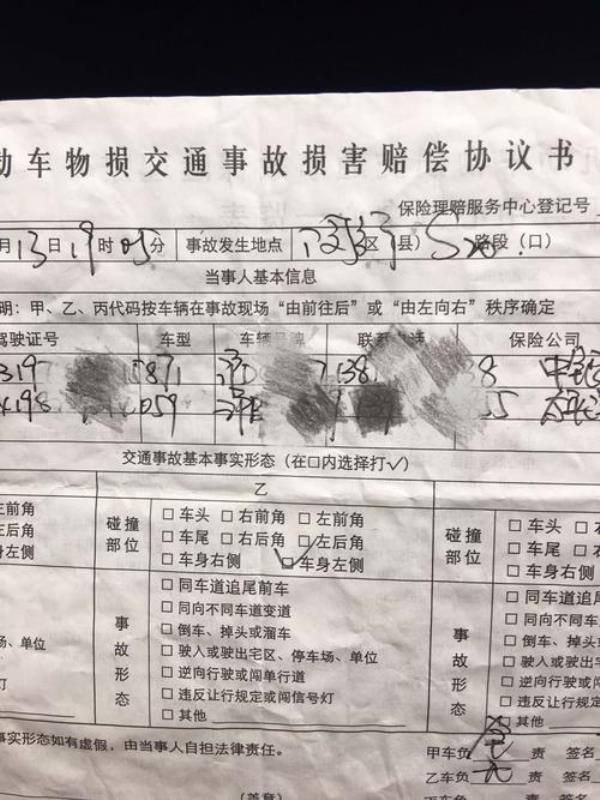 动车物损交通事故损害赔偿协议书
保险理赔服务中心登记号
月13日19时05分 事故发生地点 区(县) 路段(口)
当事人基本信息
明:甲、乙、丙代码按车辆在事故现场“由前往后”或“由左向右”秩序确定
驾驶证号 车型 车辆 联 话 保险公司
319 5871 138 38
4198 059 55
交通事故基本事实形态(在口内选择打✓)
乙
左前角 碰撞部位 □车头 □右前角 □左前角 碰撞部位 □车头
左后角 □车尾 □右后角 □左后角 □车尾
身左侧 □车身右侧 ☑车身左侧 □车身右侧
事故形态 □同车道追尾前车 事故形态 □同车道追尾
□同向不同车道变道 □同向不同车
□倒车、掉头或溜车 □倒车、掉头
场、单位 □驶入或驶出宅区、停车场、单位 □驶入或驶出宅
□逆向行驶或闯单行道 □逆向行驶或闯
灯 □违反让行规定或闯信号灯 □违反让行规定
□其他 □其他
事实形态如有虚假,由当事人自担法律责任。
甲车负全责 签名
乙车负无责 签名
(盖章)